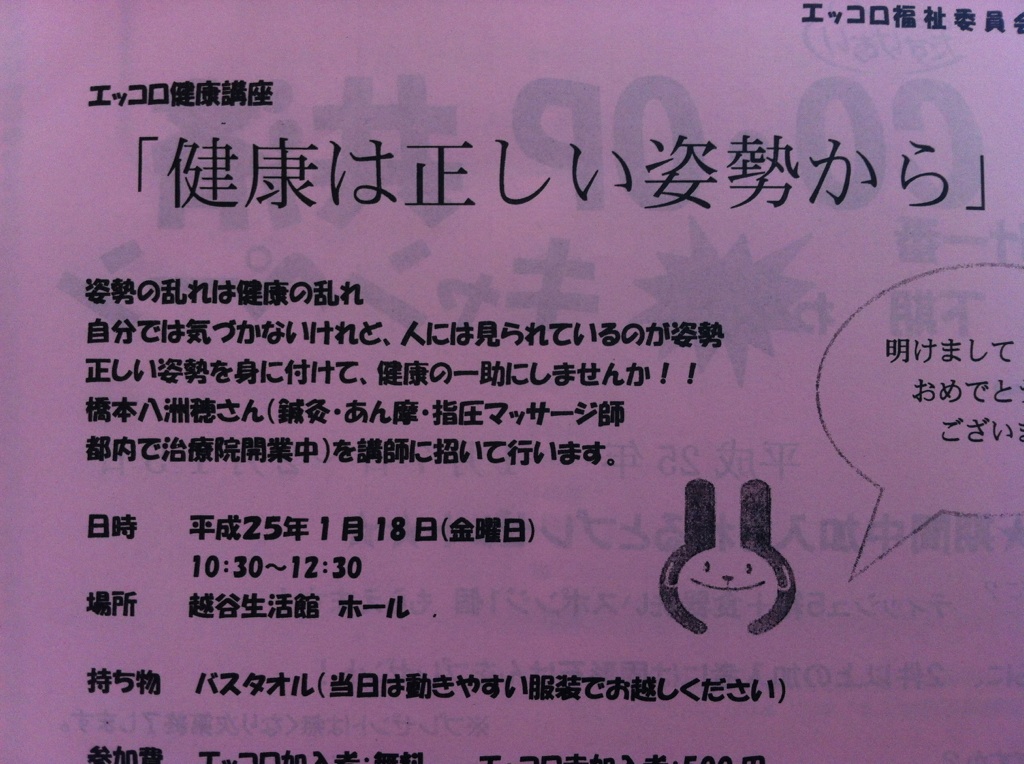 エッコロ福祉委員会
エッコロ健康講座
「健康は正しい姿勢から」
姿勢の乱れは健康の乱れ
自分では気づかないけれど、人には見られているのが姿勢
正しい姿勢を身に付けて、健康の一助にしませんか！！
橋本八洲穂さん(鍼灸・あん摩・指圧マッサージ師
都内で治療院開業中)を講師に招いて行います。
明けまして
おめでとう
ございま
日時 平成25年1月18日(金曜日)
10:30～12:30
場所 越谷生活館 ホール
持ち物 バスタオル(当日は動きやすい服装でお越しください)
参加費 エッコロ加入者:無料 エッコロ未加入者:500円